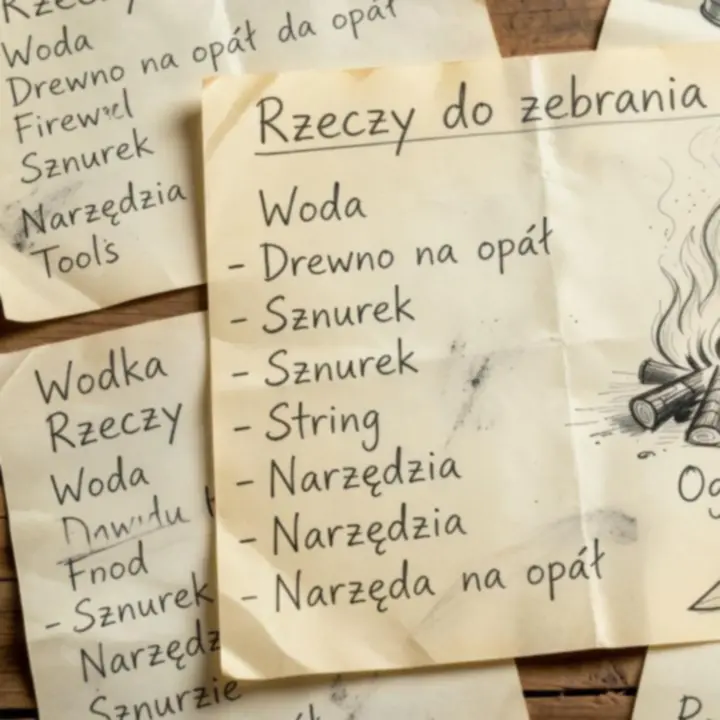 Woda
Drewno na opał da opał
Sznurek
Narzędzia
Tools
Rzeczy do zebrania
Woda
- Drewno na opał
- Sznurek
- Sznurek
- String
- Narzędzia
- Narzędzia
- Narzęda na opał
Wodka
Rzeczy
Woda
Fnod
- Sznurek
Narzędz
Sznurzie
Og